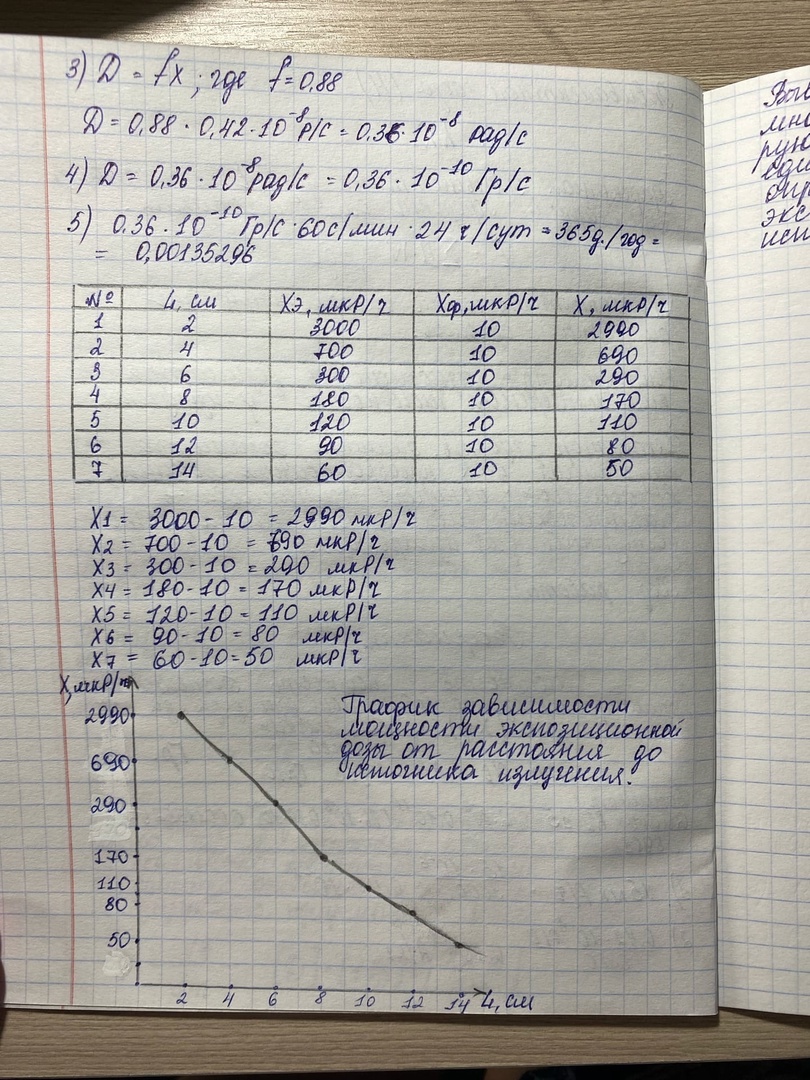 3) D = fX ; где f = 0,88
D = 0,88 · 0,42 · 10⁻⁸ Р/с = 0,36 · 10⁻⁸ рад/с
4) D = 0,36 · 10⁻⁸ рад/с = 0,36 · 10⁻¹⁰ Гр/с
5) 0,36 · 10⁻¹⁰ Гр/с · 60с/мин · 24 ч/сут = 365д./год =
= 0,00135296
№ L, см Xэ, мкР/ч Xф, мкР/ч X, мкР/ч
1 2 3000 10 2990
2 4 700 10 690
3 6 300 10 290
4 8 180 10 170
5 10 120 10 110
6 12 90 10 80
7 14 60 10 50
X1 = 3000 - 10 = 2990 мкР/ч
X2 = 700 - 10 = 690 мкР/ч
X3 = 300 - 10 = 290 мкР/ч
X4 = 180 - 10 = 170 мкР/ч
X5 = 120 - 10 = 110 мкР/ч
X6 = 90 - 10 = 80 мкР/ч
X7 = 60 - 10 = 50 мкР/ч
X, мкР/ч
График зависимости
мощности экспозиционной
дозы от расстояния до
источника излучения.
2990
690
290
170
110
80
50
2 4 6 8 10 12 14 L, см
Выв
мно
рую
экс
исп